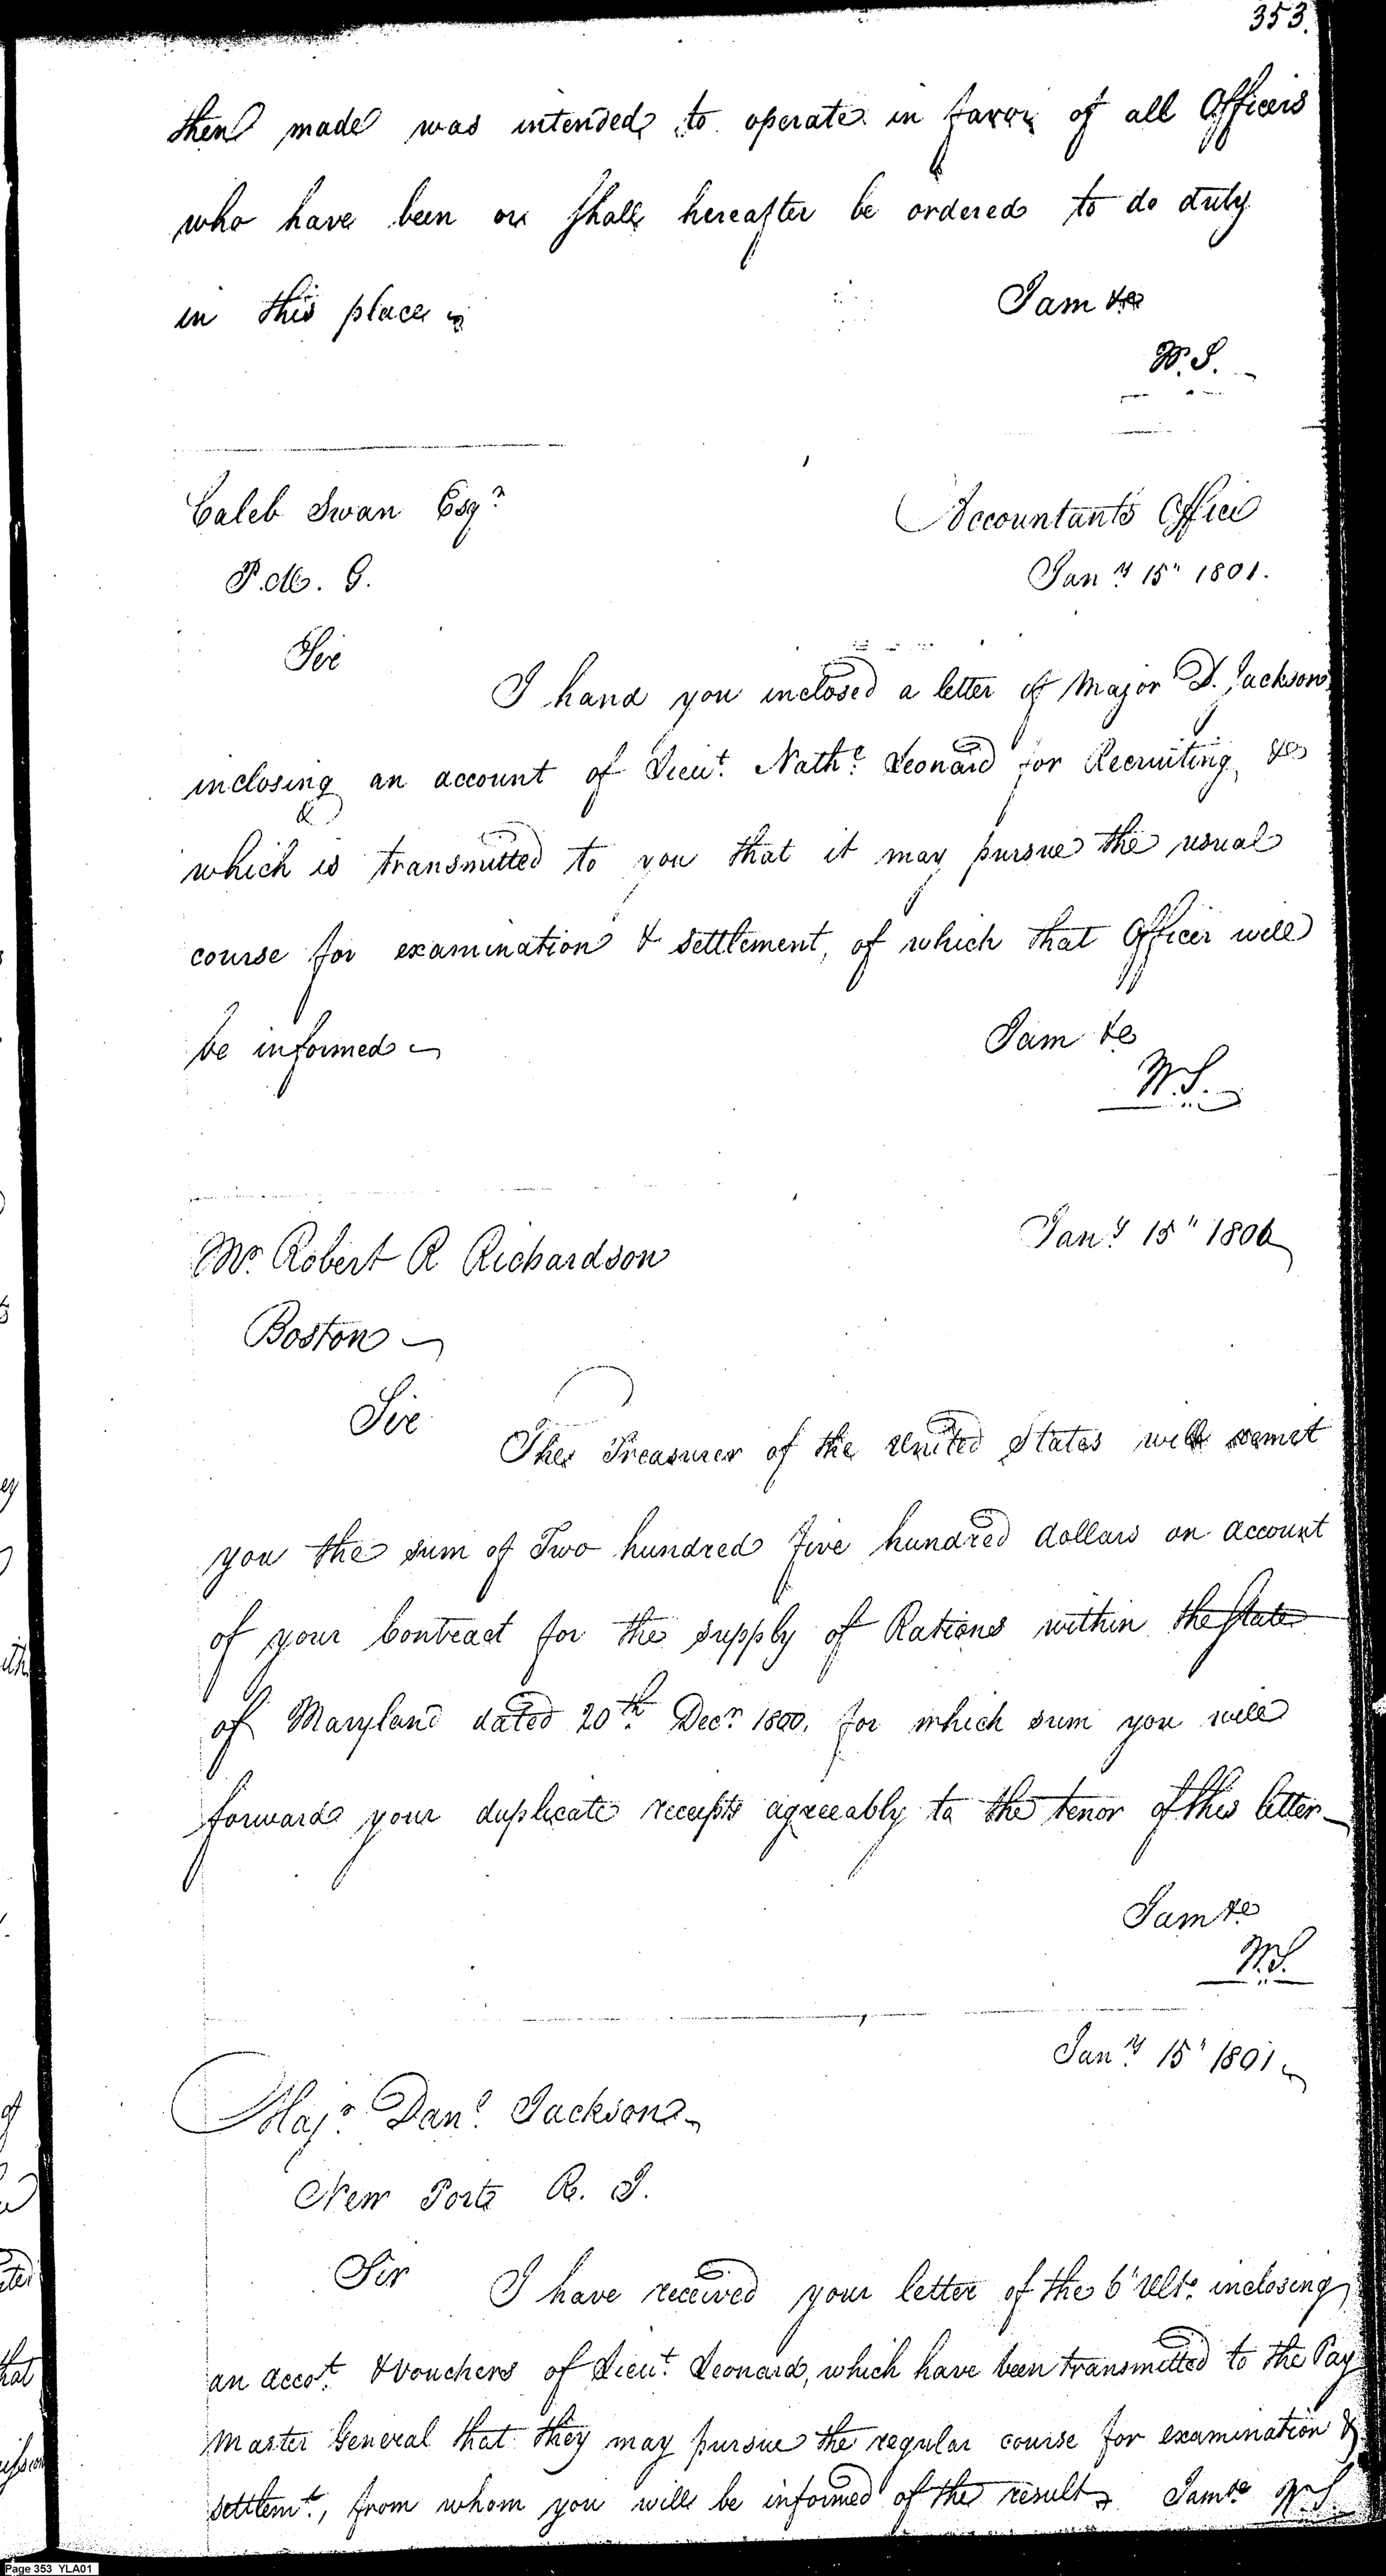 353.
then made was intended to operate in favor of all Officers
who have been or shall hereafter be ordered to do duty
in this place
I am &c
W. S.
Caleb Swan Esqr
Accountants Office
P. M. G.
Jany 15" 1801.
Sir
I hand you inclosed a letter of Major D. Jackson
inclosing an account of Lieut. Nathl. Leonard for Recruiting &c
&
which is transmitted to you that it may pursue the usual
course for examination & settlement, of which that Officer will
be informed
I am &c
W. S.
Jany 15" 1801
Mr. Robert R Richardson
Boston
Sir
The Treasurer of the United States will remit
you the sum of Two hundred five hundred dollars on account
of your Contract for the supply of Rations within the State
of Maryland dated 20th Decr. 1800, for which sum you will
forward your duplicate receipts agreeably to the tenor of this letter
I am &c
W. S.
Jany 15" 1801
Majr. Danl. Jackson
New Port R. I.
Sir
I have received your letter of the 6" Ulto. inclosing
an accot. & vouchers of Lieut. Leonard, which have been transmitted to the Pay
Master General that they may pursue the regular course for examination &
settlemt., from whom you will be informed of the result I am &c W. S.
Page 353 YLA01